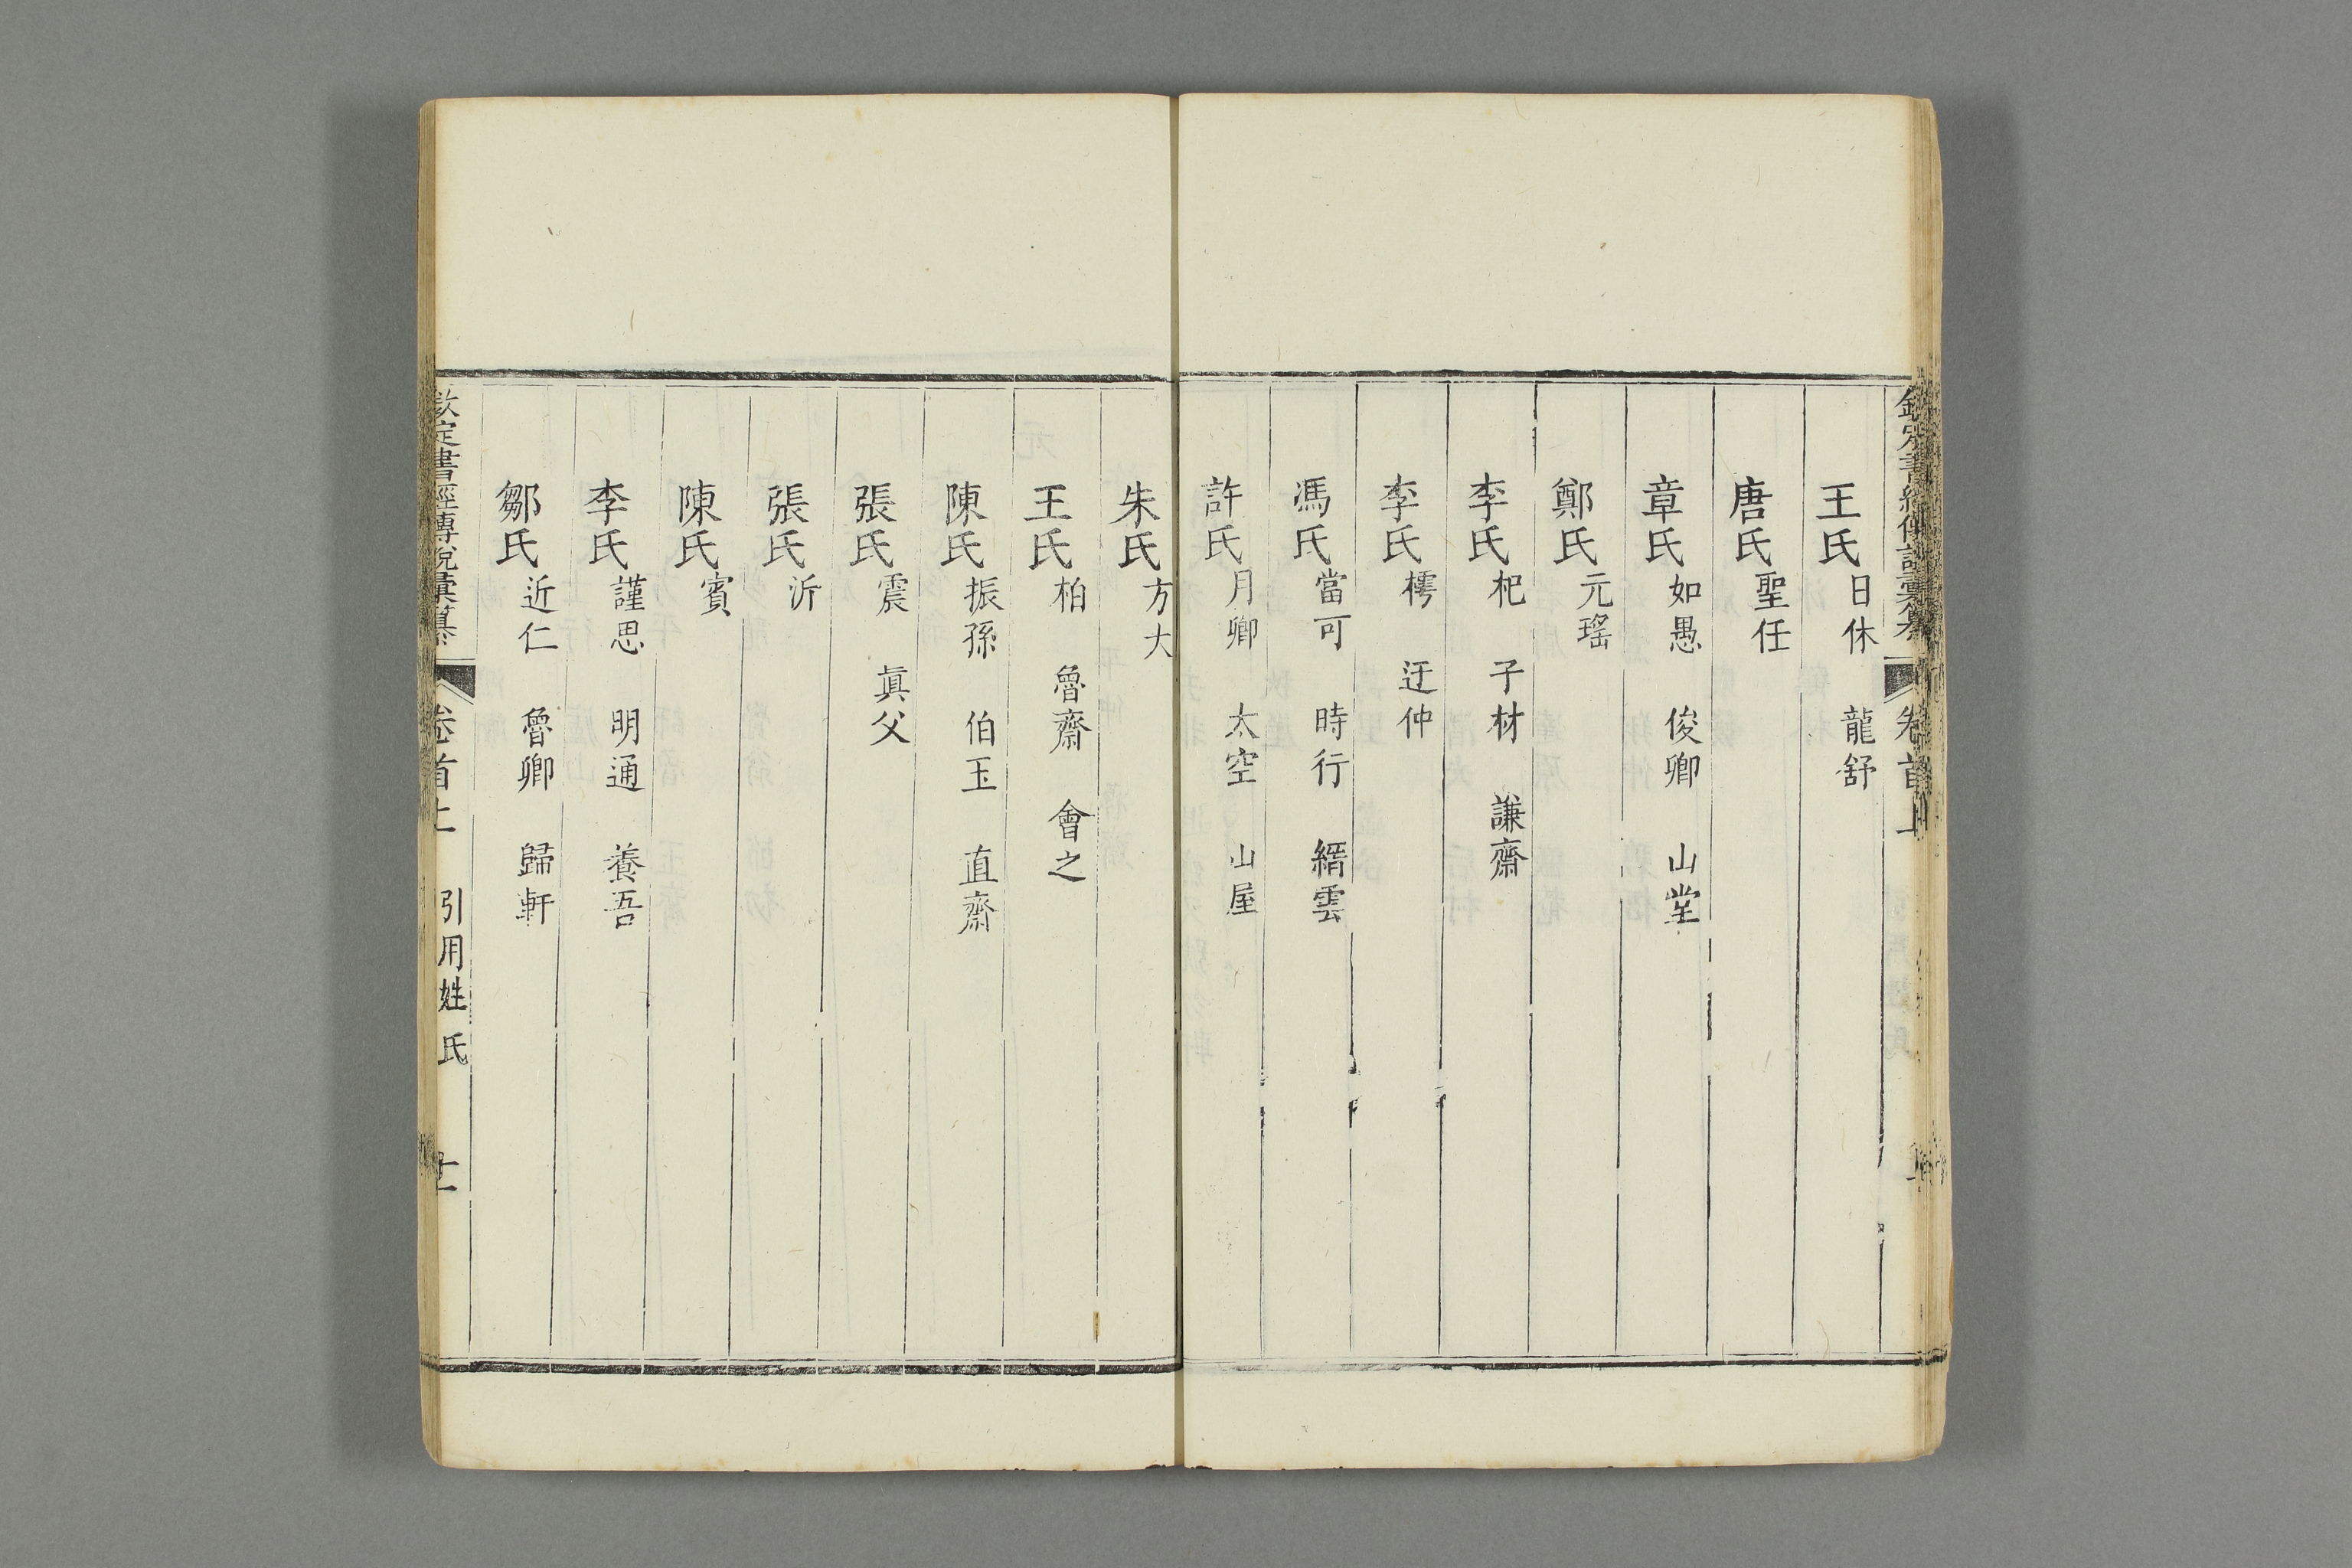 欽定書經傳說彙纂 卷首上
王氏日休 龍舒
唐氏聖任
章氏如愚 俊卿 山堂
鄭氏元瑤
李氏杞 子材 謙齋
李氏樗 迂仲
馮氏當可 時行 縉雲
許氏月卿 太空 山屋
朱氏方大
王氏柏 魯齋 會之
陳氏振孫 伯玉 直齋
張氏震 眞父
張氏沂
陳氏賓
李氏謹思 明通 養吾
鄒氏近仁 魯卿 歸軒
欽定書經傳說彙纂 卷首上 引用姓氏